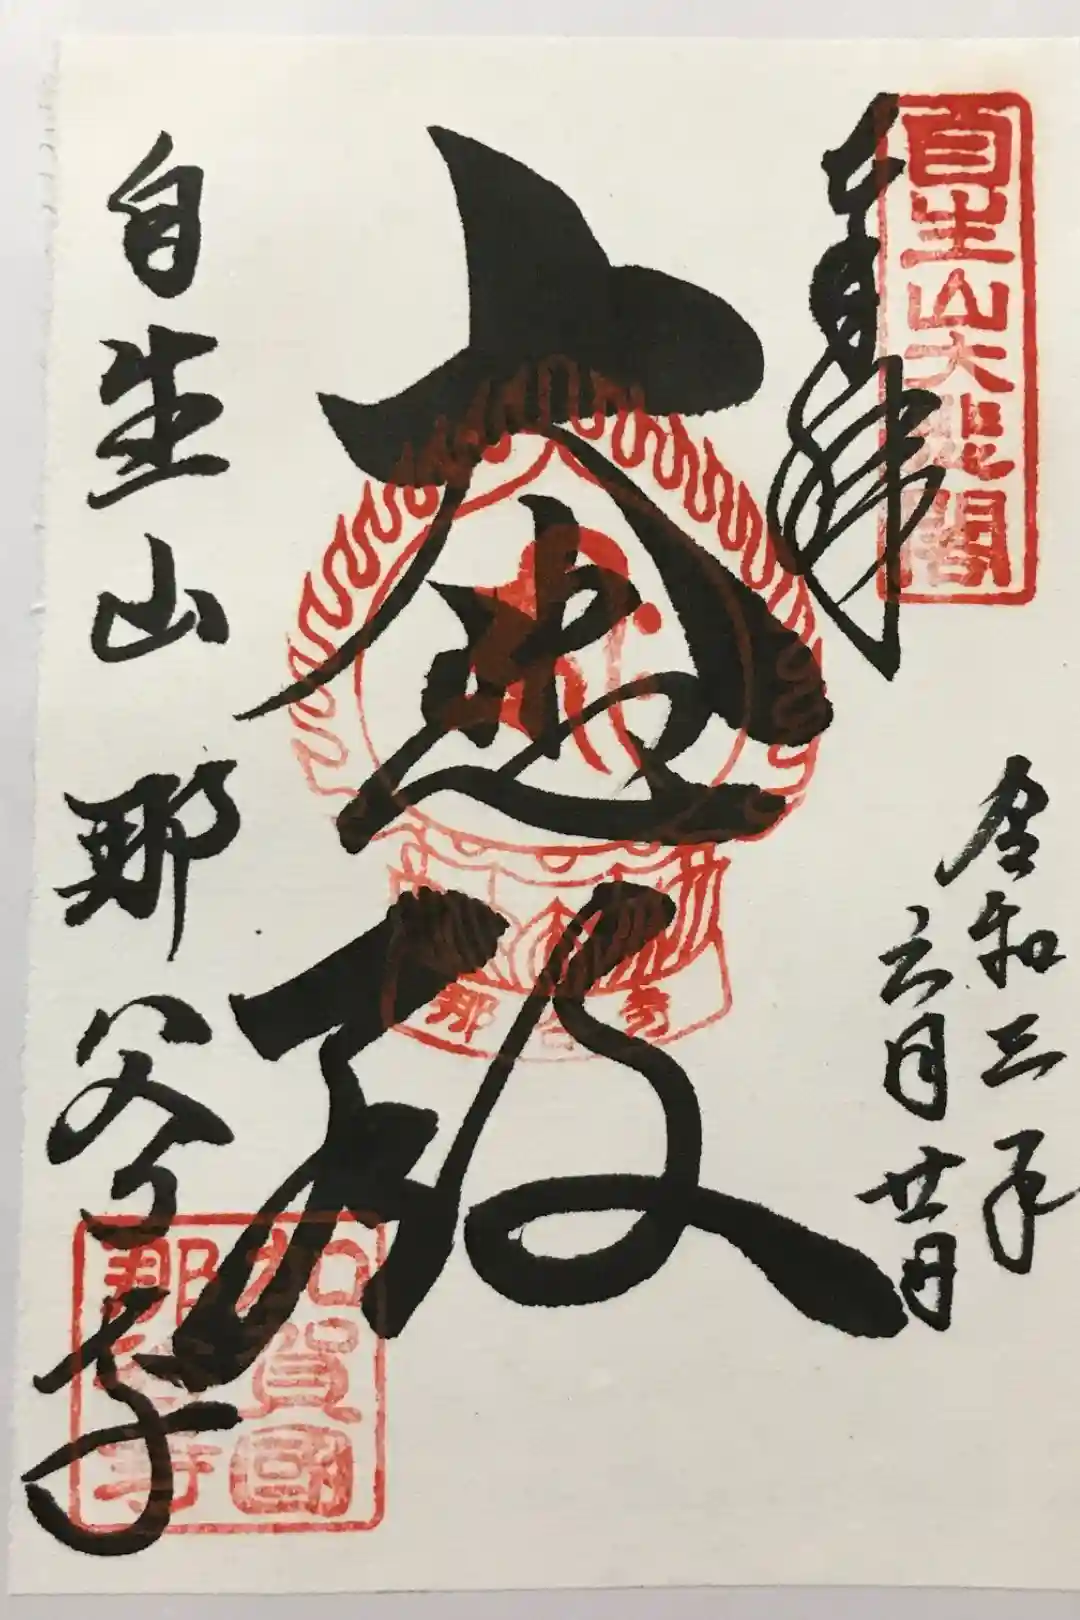 奉拝
自生山大悲閣
令和三年
六月廿日
大悲殿
那谷寺
自生山那谷寺
加賀國
那谷寺